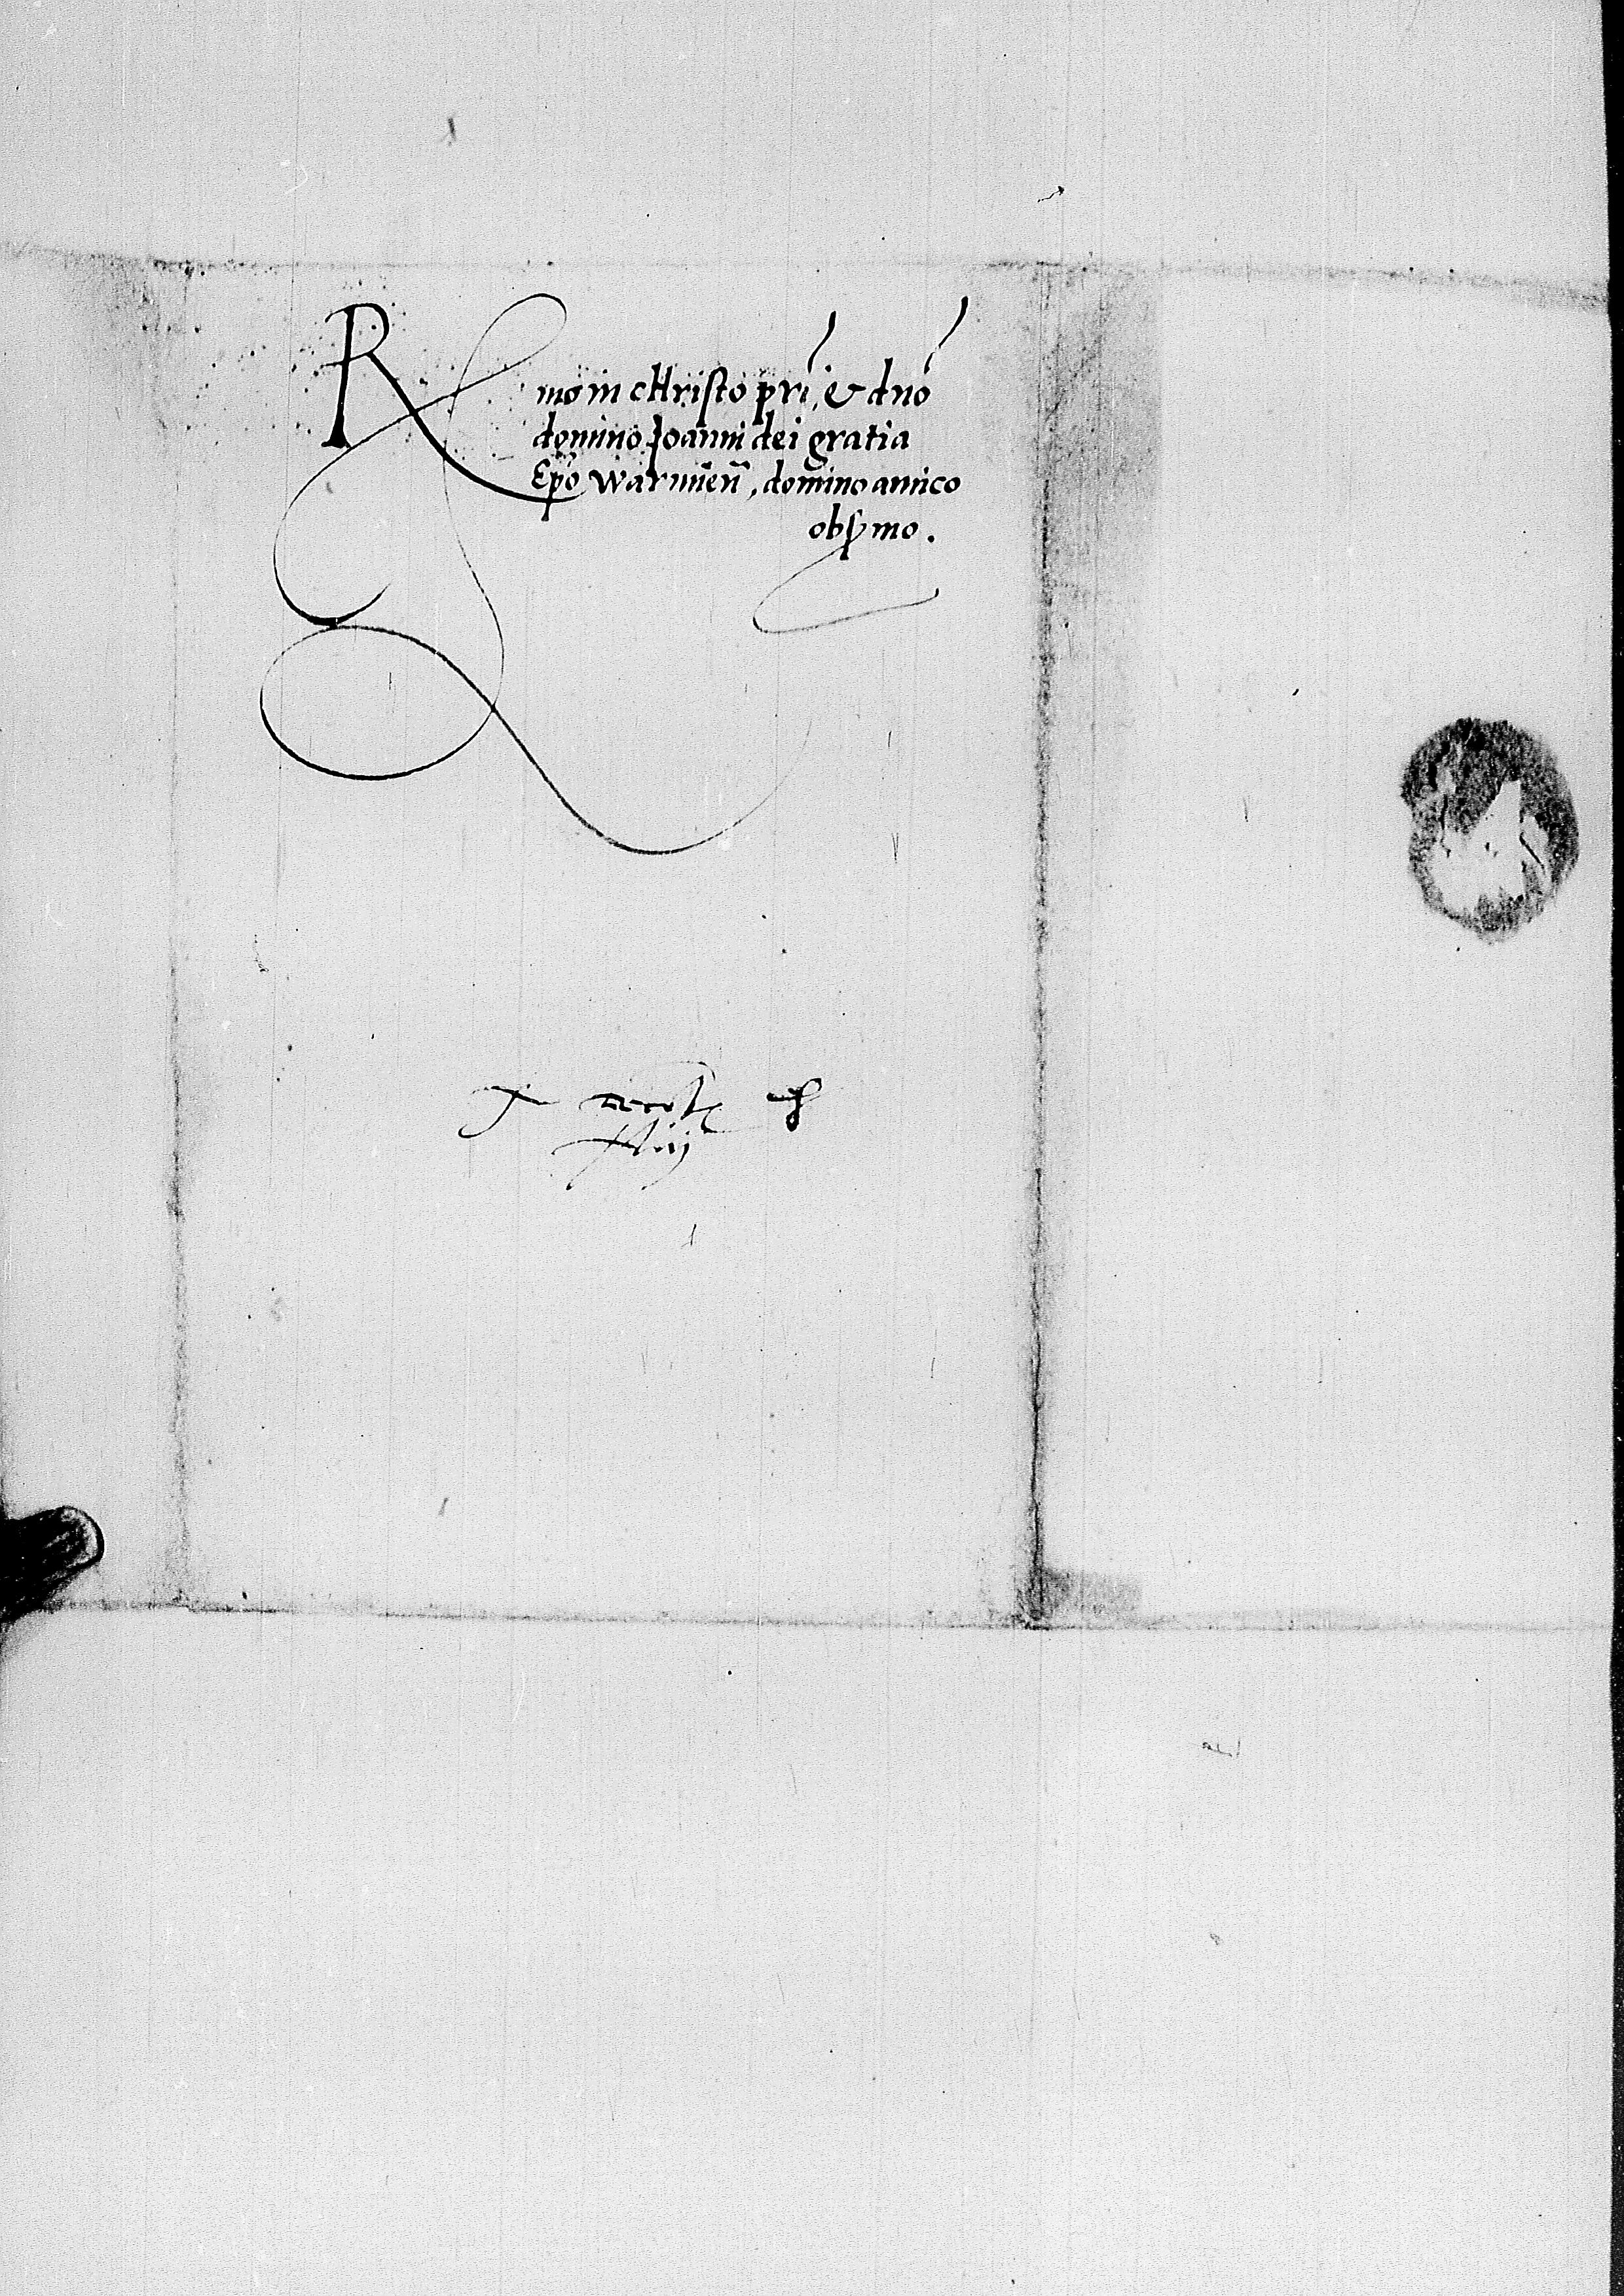 Rmo in cHristo pri, & dno
domino Joanni dei gratia
Epo Warmien, domino amico
obsmo.